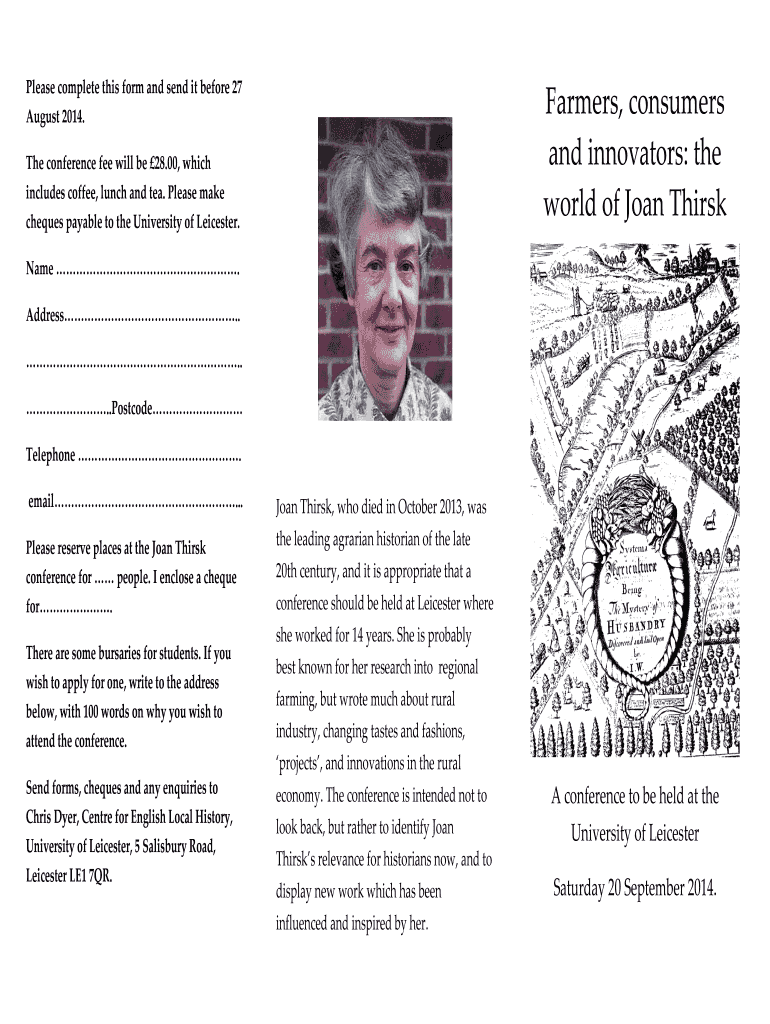 Please complete this form and send it before 27
August 2014.
The conference fee will be £28.00, which
includes coffee, lunch and tea. Please make
cheques payable to the University of Leicester.
Name ……………………………………………….
Address……………………………………………..
………………………………………………………..
……………………..Postcode………………………
Telephone ………………………………………….
email………………………………………………...
Please reserve places at the Joan Thirsk
conference for …… people. I enclose a cheque
for………………….
There are some bursaries for students. If you
wish to apply for one, write to the address
below, with 100 words on why you wish to
attend the conference.
Send forms, cheques and any enquiries to
Chris Dyer, Centre for English Local History,
University of Leicester, 5 Salisbury Road,
Leicester LE1 7QR.
Joan Thirsk, who died in October 2013, was
the leading agrarian historian of the late
20th century, and it is appropriate that a
conference should be held at Leicester where
she worked for 14 years. She is probably
best known for her research into regional
farming, but wrote much about rural
industry, changing tastes and fashions,
‘projects’, and innovations in the rural
economy. The conference is intended not to
look back, but rather to identify Joan
Thirsk’s relevance for historians now, and to
display new work which has been
influenced and inspired by her.
Farmers, consumers
and innovators: the
world of Joan Thirsk
Systema
Agriculturæ
Being
The Mystery of
HUSBANDRY
Discovered and laid Open
by
I.W.
A conference to be held at the
University of Leicester
Saturday 20 September 2014.